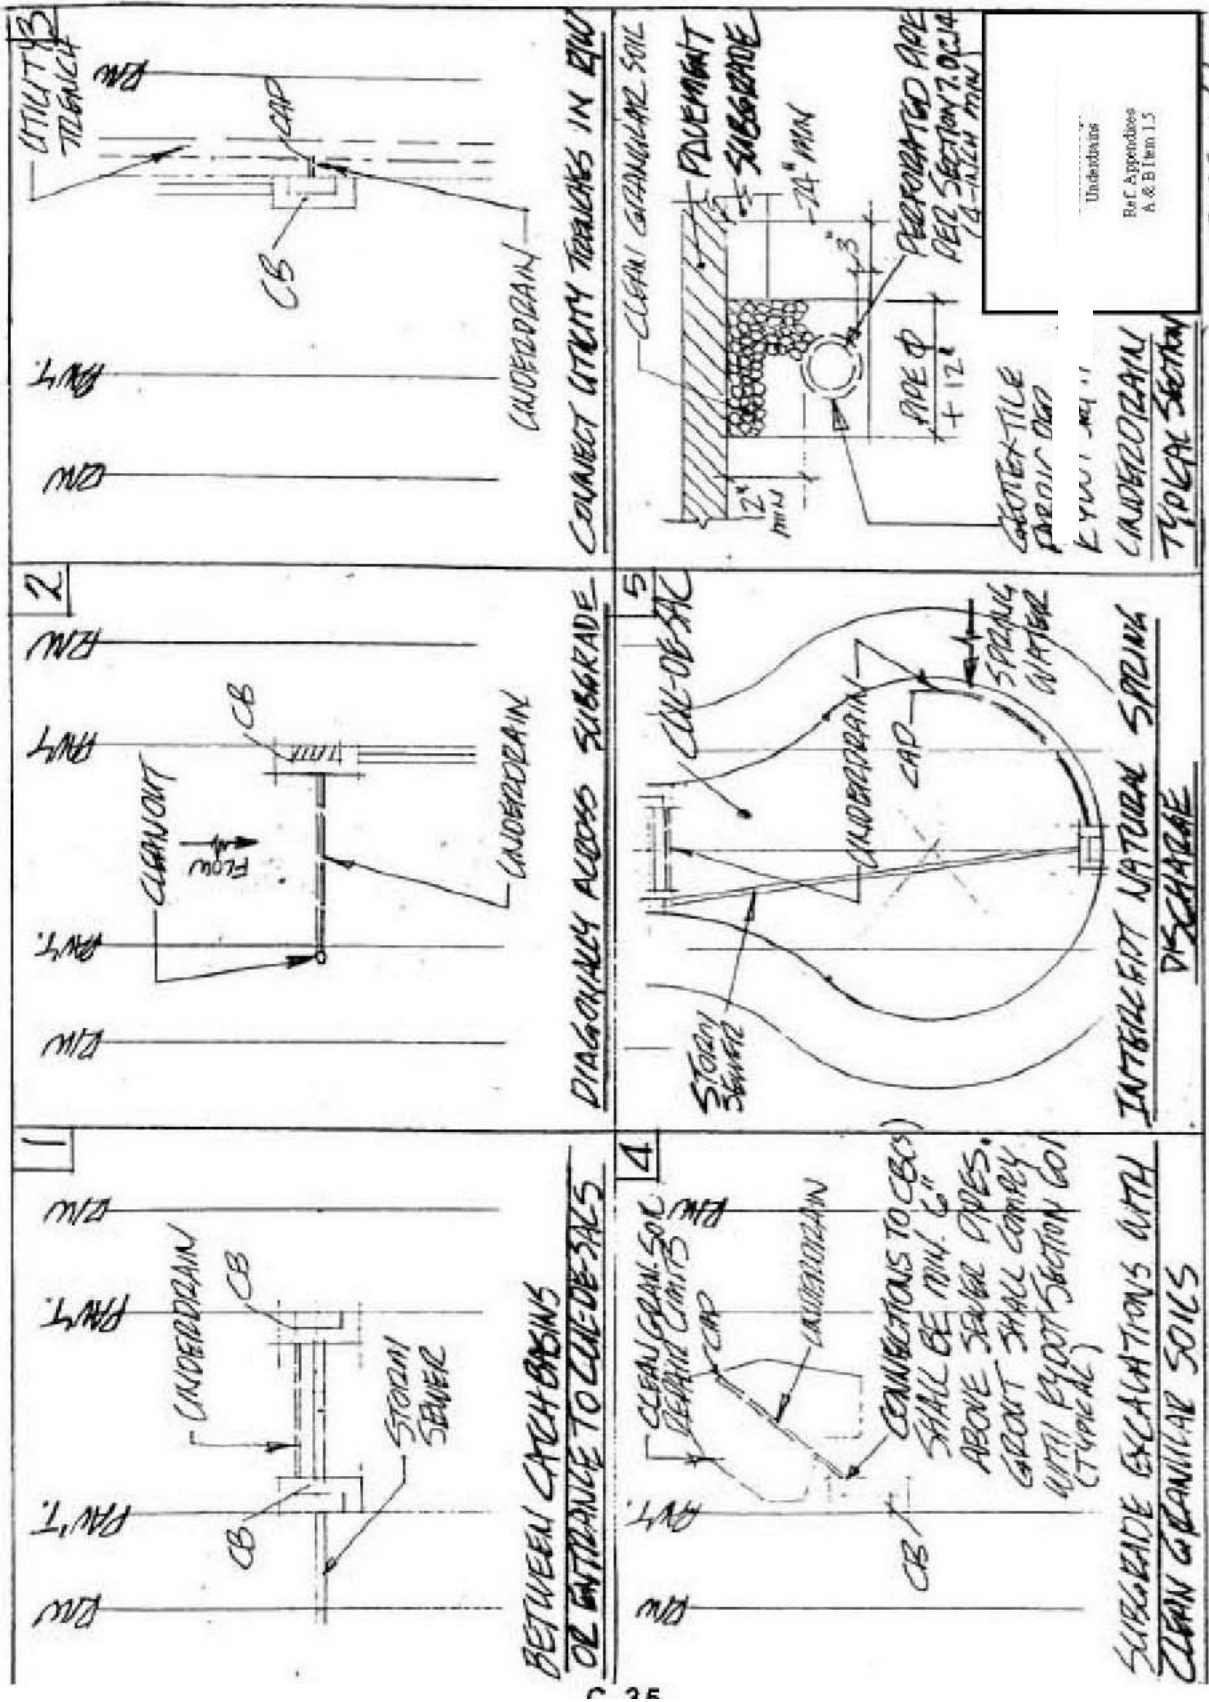 1
R/W
PAV'T.
PAV'T.
R/W
UNDERDRAIN
CB
CB
STORM
SEWER
BETWEEN CATCH BASINS
OR ENTRANCE TO CUL-DE-SACS
2
R/W
PAV'T.
PAV'T
R/W
CLEANOUT
FLOW
CB
UNDERDRAIN
DIAGONALLY ACROSS SUBGRADE
3
R/W
PAV'T.
R/W
UTILITY
TRENCH
CB
CAP
UNDERDRAIN
CONNECT UTILITY TRENCHES IN R/W
4
R/W
PAV'T.
R/W
CLEAN GRAN. SOIL
REPAIR LIMITS
CAP
UNDERDRAIN
CB
CONNECTIONS TO CB(S)
SHALL BE MIN. 6"
ABOVE SEWER PIPES.
GROUT SHALL COMPLY
WITH KYDOT SECTION 601
(TYPICAL)
SUBGRADE EXCAVATIONS WITH
CLEAN GRANULAR SOILS
5
CUL-DE-SAC
STORM
SEWER
UNDERDRAIN
CAP
SPRING
WATER
INTERCEPT NATURAL SPRING
DISCHARGE
CLEAN GRANULAR SOIL
PAVEMENT
SUBGRADE
24" MIN
12"
MIN
3"
PIPE Φ
+ 12"
PERFORATED PIPE
PER SECTION
(4-INCH MIN)
GEOTEXTILE
FABRIC PER
KYDOT
UNDERDRAIN
TYPICAL SECTION
Underdrains
Ref. Appendices
A & B Item 1.5
C-35